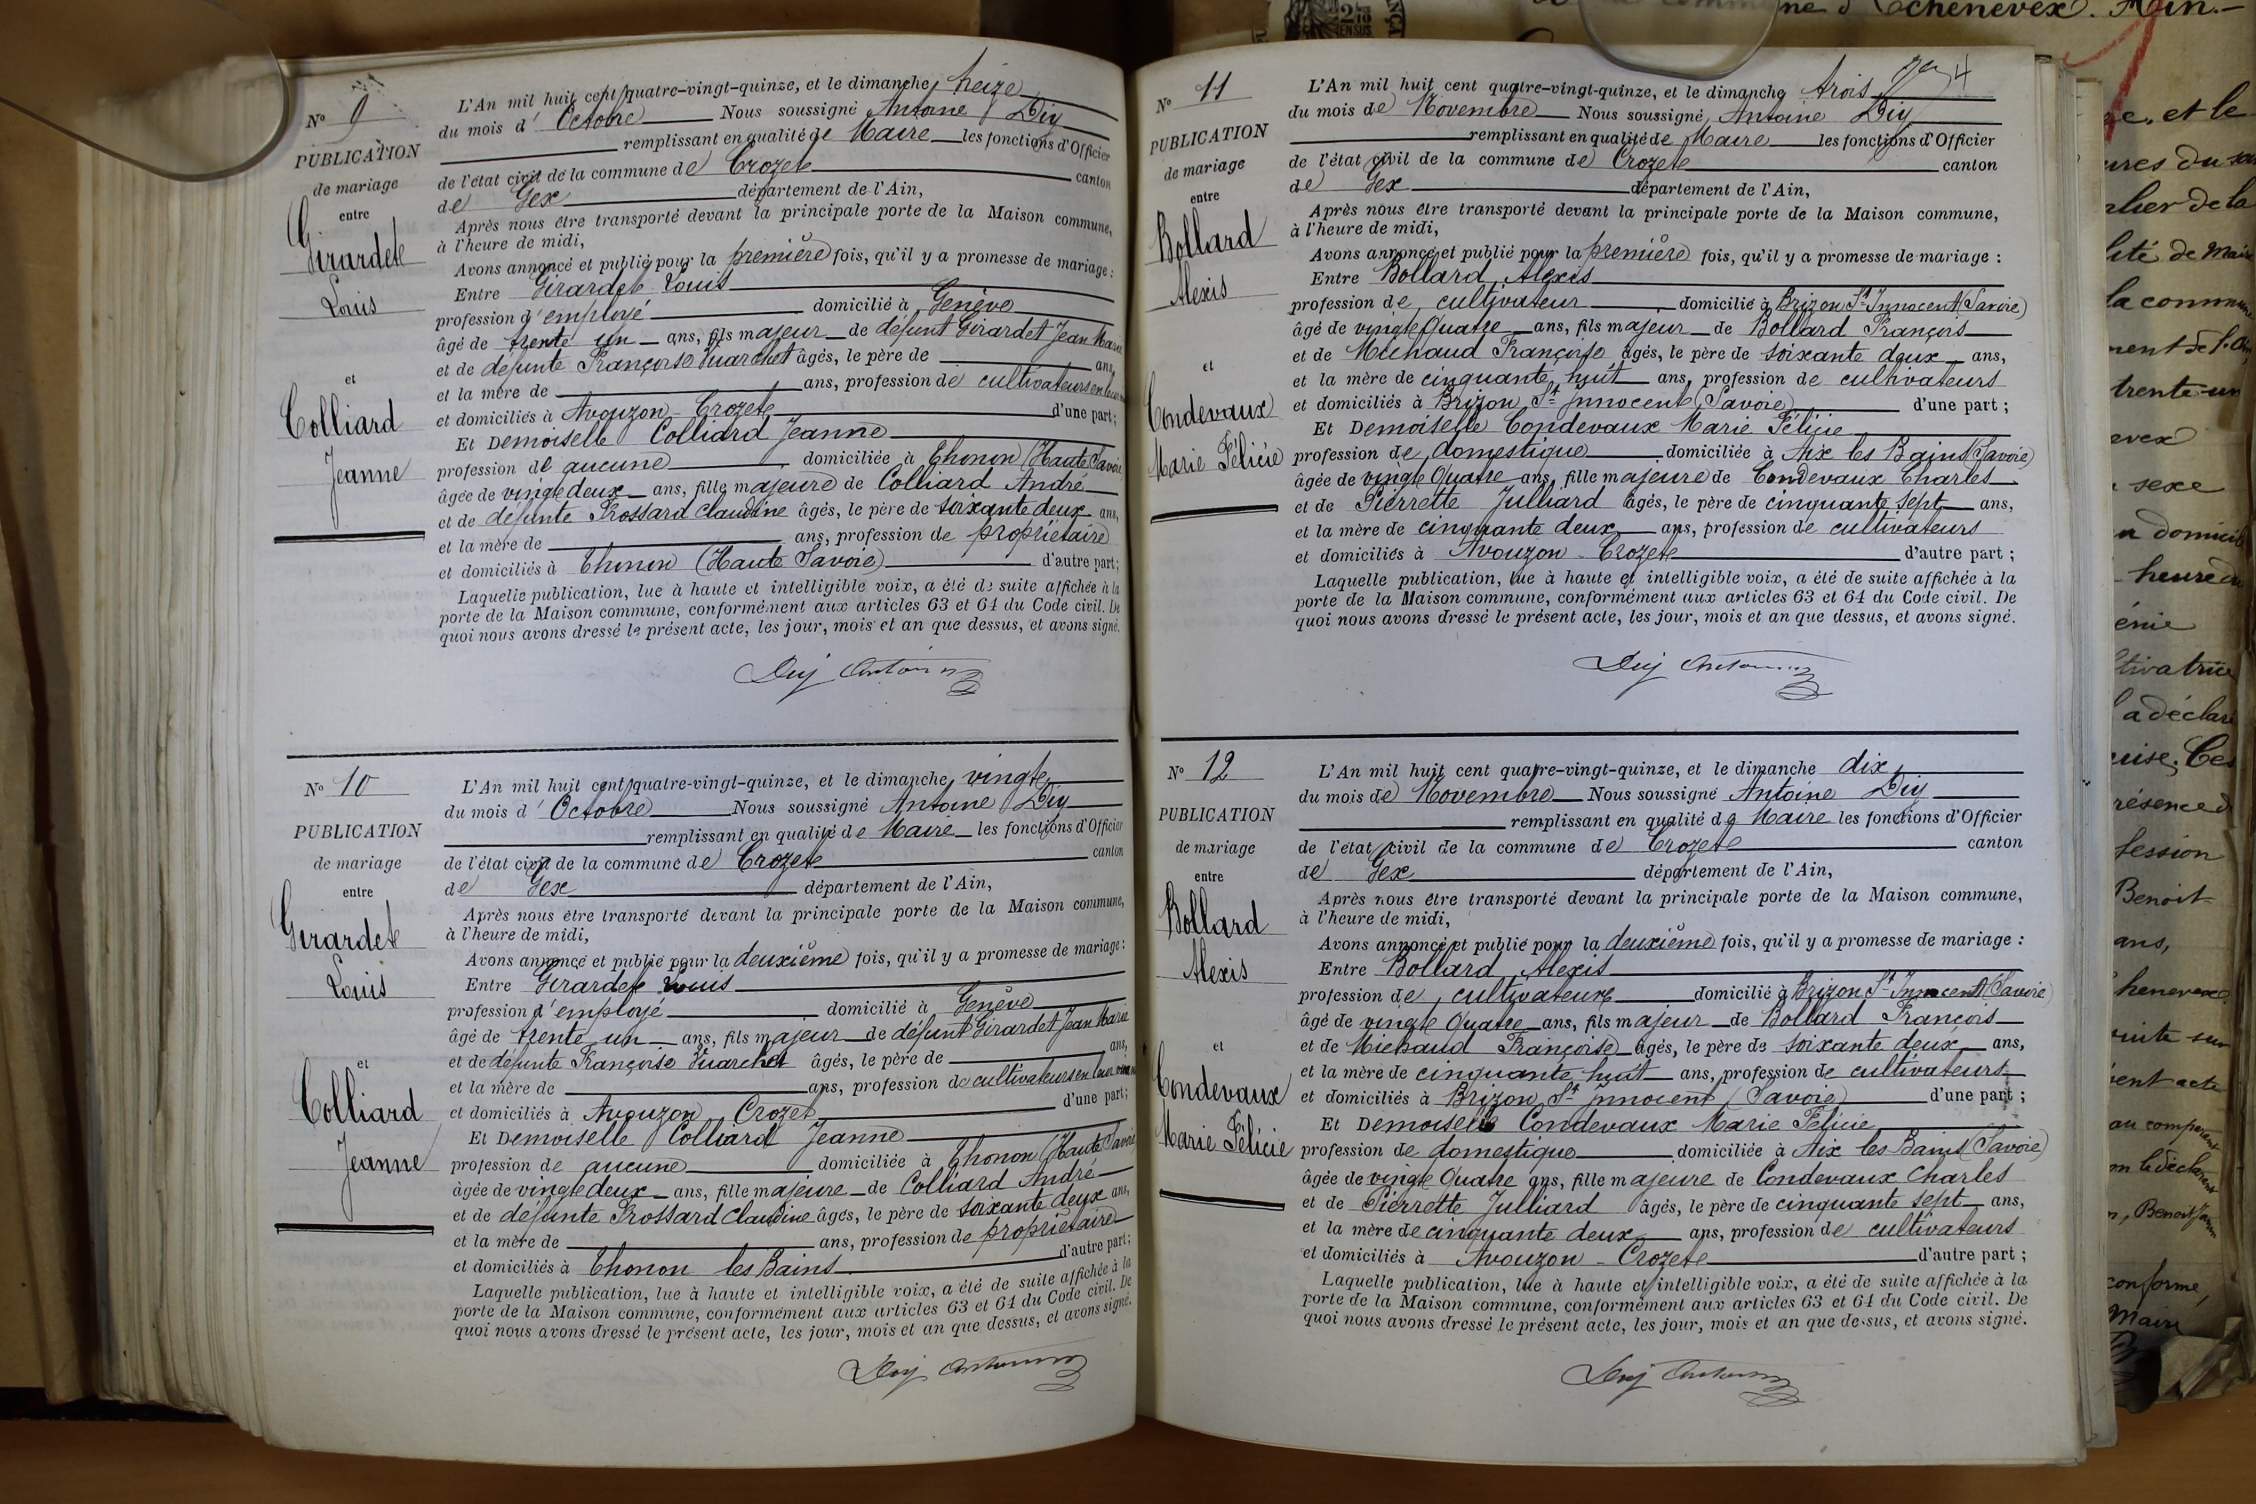 N° 9
PUBLICATION
de mariage
entre
Girardet
Louis
et
Colliard
Jeanne
L'An mil huit cent quatre-vingt-quinze, et le dimanche treize
du mois d' Octobre Nous soussigné Antoine Diy
remplissant en qualité de Maire les fonctions d'Officier
de l'état civil de la commune de Crozet canton
de Gex département de l'Ain,
Après nous être transporté devant la principale porte de la Maison commune,
à l'heure de midi,
Avons annoncé et publié pour la première fois, qu'il y a promesse de mariage :
Entre Girardet Louis
profession d'employé domicilié à Genève
âgé de trente un ans, fils majeur de défunt Girardet Jean Marie
et de défunte Françoise Vuarchet âgés, le père de ans,
et la mère de ans, profession de cultivateurs en leur
et domiciliés à Avouzon Crozet d'une part ;
Et Demoiselle Colliard Jeanne
profession de aucune domiciliée à Thonon (Haute Savoie
âgée de vingt deux ans, fille majeure de Colliard André
et de défunte Frossard Claudine âgés, le père de soixante deux ans,
et la mère de ans, profession de propriétaire
et domiciliés à Thonon (Haute Savoie) d'autre part ;
Laquelle publication, lue à haute et intelligible voix, a été de suite affichée à la
porte de la Maison commune, conformément aux articles 63 et 64 du Code civil. De
quoi nous avons dressé le présent acte, les jour, mois et an que dessus, et avons signé.
Diy Antoine
N° 10
PUBLICATION
de mariage
entre
Girardet
Louis
et
Colliard
Jeanne
L'An mil huit cent quatre-vingt-quinze, et le dimanche vingt
du mois d' Octobre Nous soussigné Antoine Diy
remplissant en qualité de Maire les fonctions d'Officier
de l'état civil de la commune de Crozet canton
de Gex département de l'Ain,
Après nous être transporté devant la principale porte de la Maison commune,
à l'heure de midi,
Avons annoncé et publié pour la deuxième fois, qu'il y a promesse de mariage :
Entre Girardet Louis
profession d'employé domicilié à Genève
âgé de trente un ans, fils majeur de défunt Girardet Jean Marie
et de défunte Françoise Vuarchet âgés, le père de ans,
et la mère de ans, profession de cultivateurs en leur
et domiciliés à Avouzon Crozet d'une part ;
Et Demoiselle Colliard Jeanne
profession de aucune domiciliée à Thonon (Haute Savoie
âgée de vingt deux ans, fille majeure de Colliard André
et de défunte Frossard Claudine âgés, le père de soixante deux ans,
et la mère de ans, profession de propriétaire
et domiciliés à Thonon les Bains d'autre part ;
Laquelle publication, lue à haute et intelligible voix, a été de suite affichée à la
porte de la Maison commune, conformément aux articles 63 et 64 du Code civil. De
quoi nous avons dressé le présent acte, les jour, mois et an que dessus, et avons signé.
Diy Antoine
4
N° 11
PUBLICATION
de mariage
entre
Bollard
Alexis
et
Condevaux
Marie Félicie
L'An mil huit cent quatre-vingt-quinze, et le dimanche trois
du mois de Novembre Nous soussigné Antoine Diy
remplissant en qualité de Maire les fonctions d'Officier
de l'état civil de la commune de Crozet canton
de Gex département de l'Ain,
Après nous être transporté devant la principale porte de la Maison commune,
à l'heure de midi,
Avons annoncé et publié pour la première fois, qu'il y a promesse de mariage :
Entre Bollard Alexis
profession de cultivateur domicilié à Brizon St Innocent (Savoie)
âgé de vingt Quatre ans, fils majeur de Bollard François
et de Michaud Françoise âgés, le père de soixante deux ans,
et la mère de cinquante huit ans, profession de cultivateurs
et domiciliés à Brizon St Innocent (Savoie) d'une part ;
Et Demoiselle Condevaux Marie Félicie
profession de domestique domiciliée à Aix les Bains (Savoie)
âgée de vingt Quatre ans, fille majeure de Condevaux Charles
et de Pierrette Julliard âgés, le père de cinquante sept ans,
et la mère de cinquante deux ans, profession de cultivateurs
et domiciliés à Avouzon - Crozet d'autre part ;
Laquelle publication, lue à haute et intelligible voix, a été de suite affichée à la
porte de la Maison commune, conformément aux articles 63 et 64 du Code civil. De
quoi nous avons dressé le présent acte, les jour, mois et an que dessus, et avons signé.
Diy Antoine
N° 12
PUBLICATION
de mariage
entre
Bollard
Alexis
et
Condevaux
Marie Félicie
L'An mil huit cent quatre-vingt-quinze, et le dimanche dix
du mois de Novembre Nous soussigné Antoine Diy
remplissant en qualité de Maire les fonctions d'Officier
de l'état civil de la commune de Crozet canton
de Gex département de l'Ain,
Après nous être transporté devant la principale porte de la Maison commune,
à l'heure de midi,
Avons annoncé et publié pour la deuxième fois, qu'il y a promesse de mariage :
Entre Bollard Alexis
profession de cultivateur domicilié à Brizon St Innocent (Savoie
âgé de vingt Quatre ans, fils majeur de Bollard François
et de Michaud Françoise âgés, le père de soixante deux ans,
et la mère de cinquante huit ans, profession de cultivateurs
et domiciliés à Brizon St Innocent (Savoie) d'une part ;
Et Demoiselle Condevaux Marie Félicie
profession de domestique domiciliée à Aix les Bains (Savoie)
âgée de vingt Quatre ans, fille majeure de Condevaux Charles
et de Pierrette Julliard âgés, le père de cinquante sept ans,
et la mère de cinquante deux ans, profession de cultivateurs
et domiciliés à Avouzon - Crozet d'autre part ;
Laquelle publication, lue à haute et intelligible voix, a été de suite affichée à la
porte de la Maison commune, conformément aux articles 63 et 64 du Code civil. De
quoi nous avons dressé le présent acte, les jour, mois et an que dessus, et avons signé.
Diy Antoine
Echenevex. Ain.
et le
de la
de Maire
la commune
trente-un
sexe
domicile
heure du
a déclaré
session
Benoit
ans,
sent acte
au comparant
Benoit
conforme,
Maire